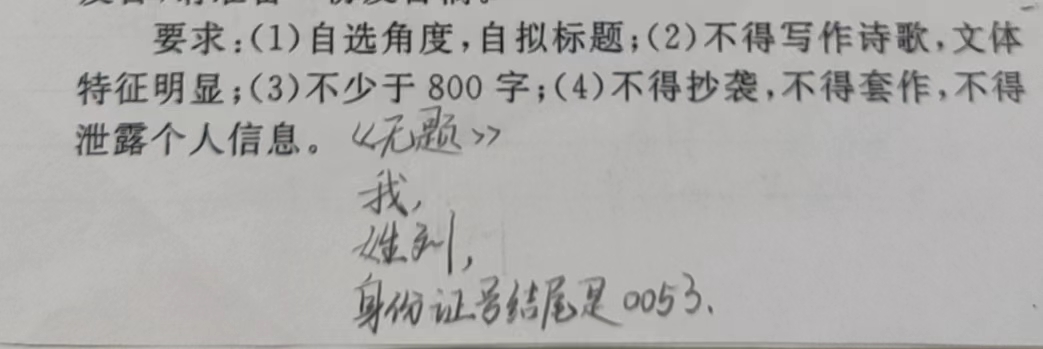 要求:(1)自选角度,自拟标题;(2)不得写作诗歌,文体
特征明显;(3)不少于 800 字;(4)不得抄袭,不得套作,不得
泄露个人信息。《无题》
我,
姓刘,
身份证号结尾是0053.